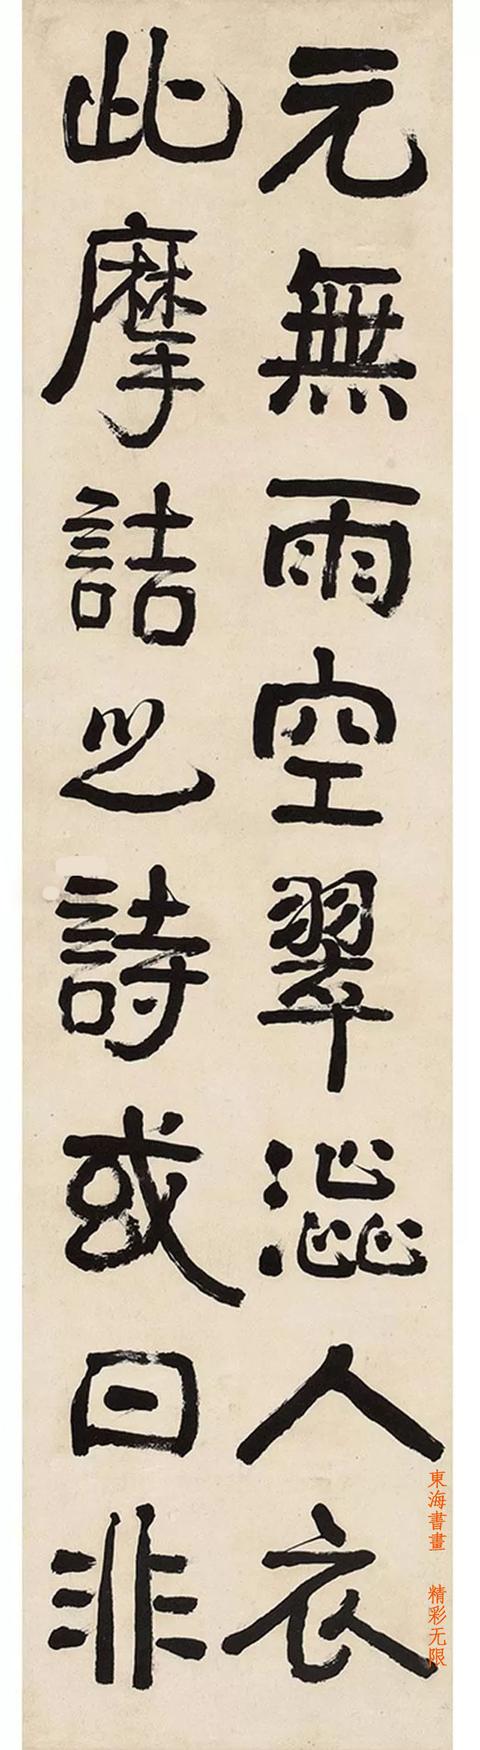 元無雨空翠澁人衣
此摩詰之詩或曰非
東海書畫 精彩无限